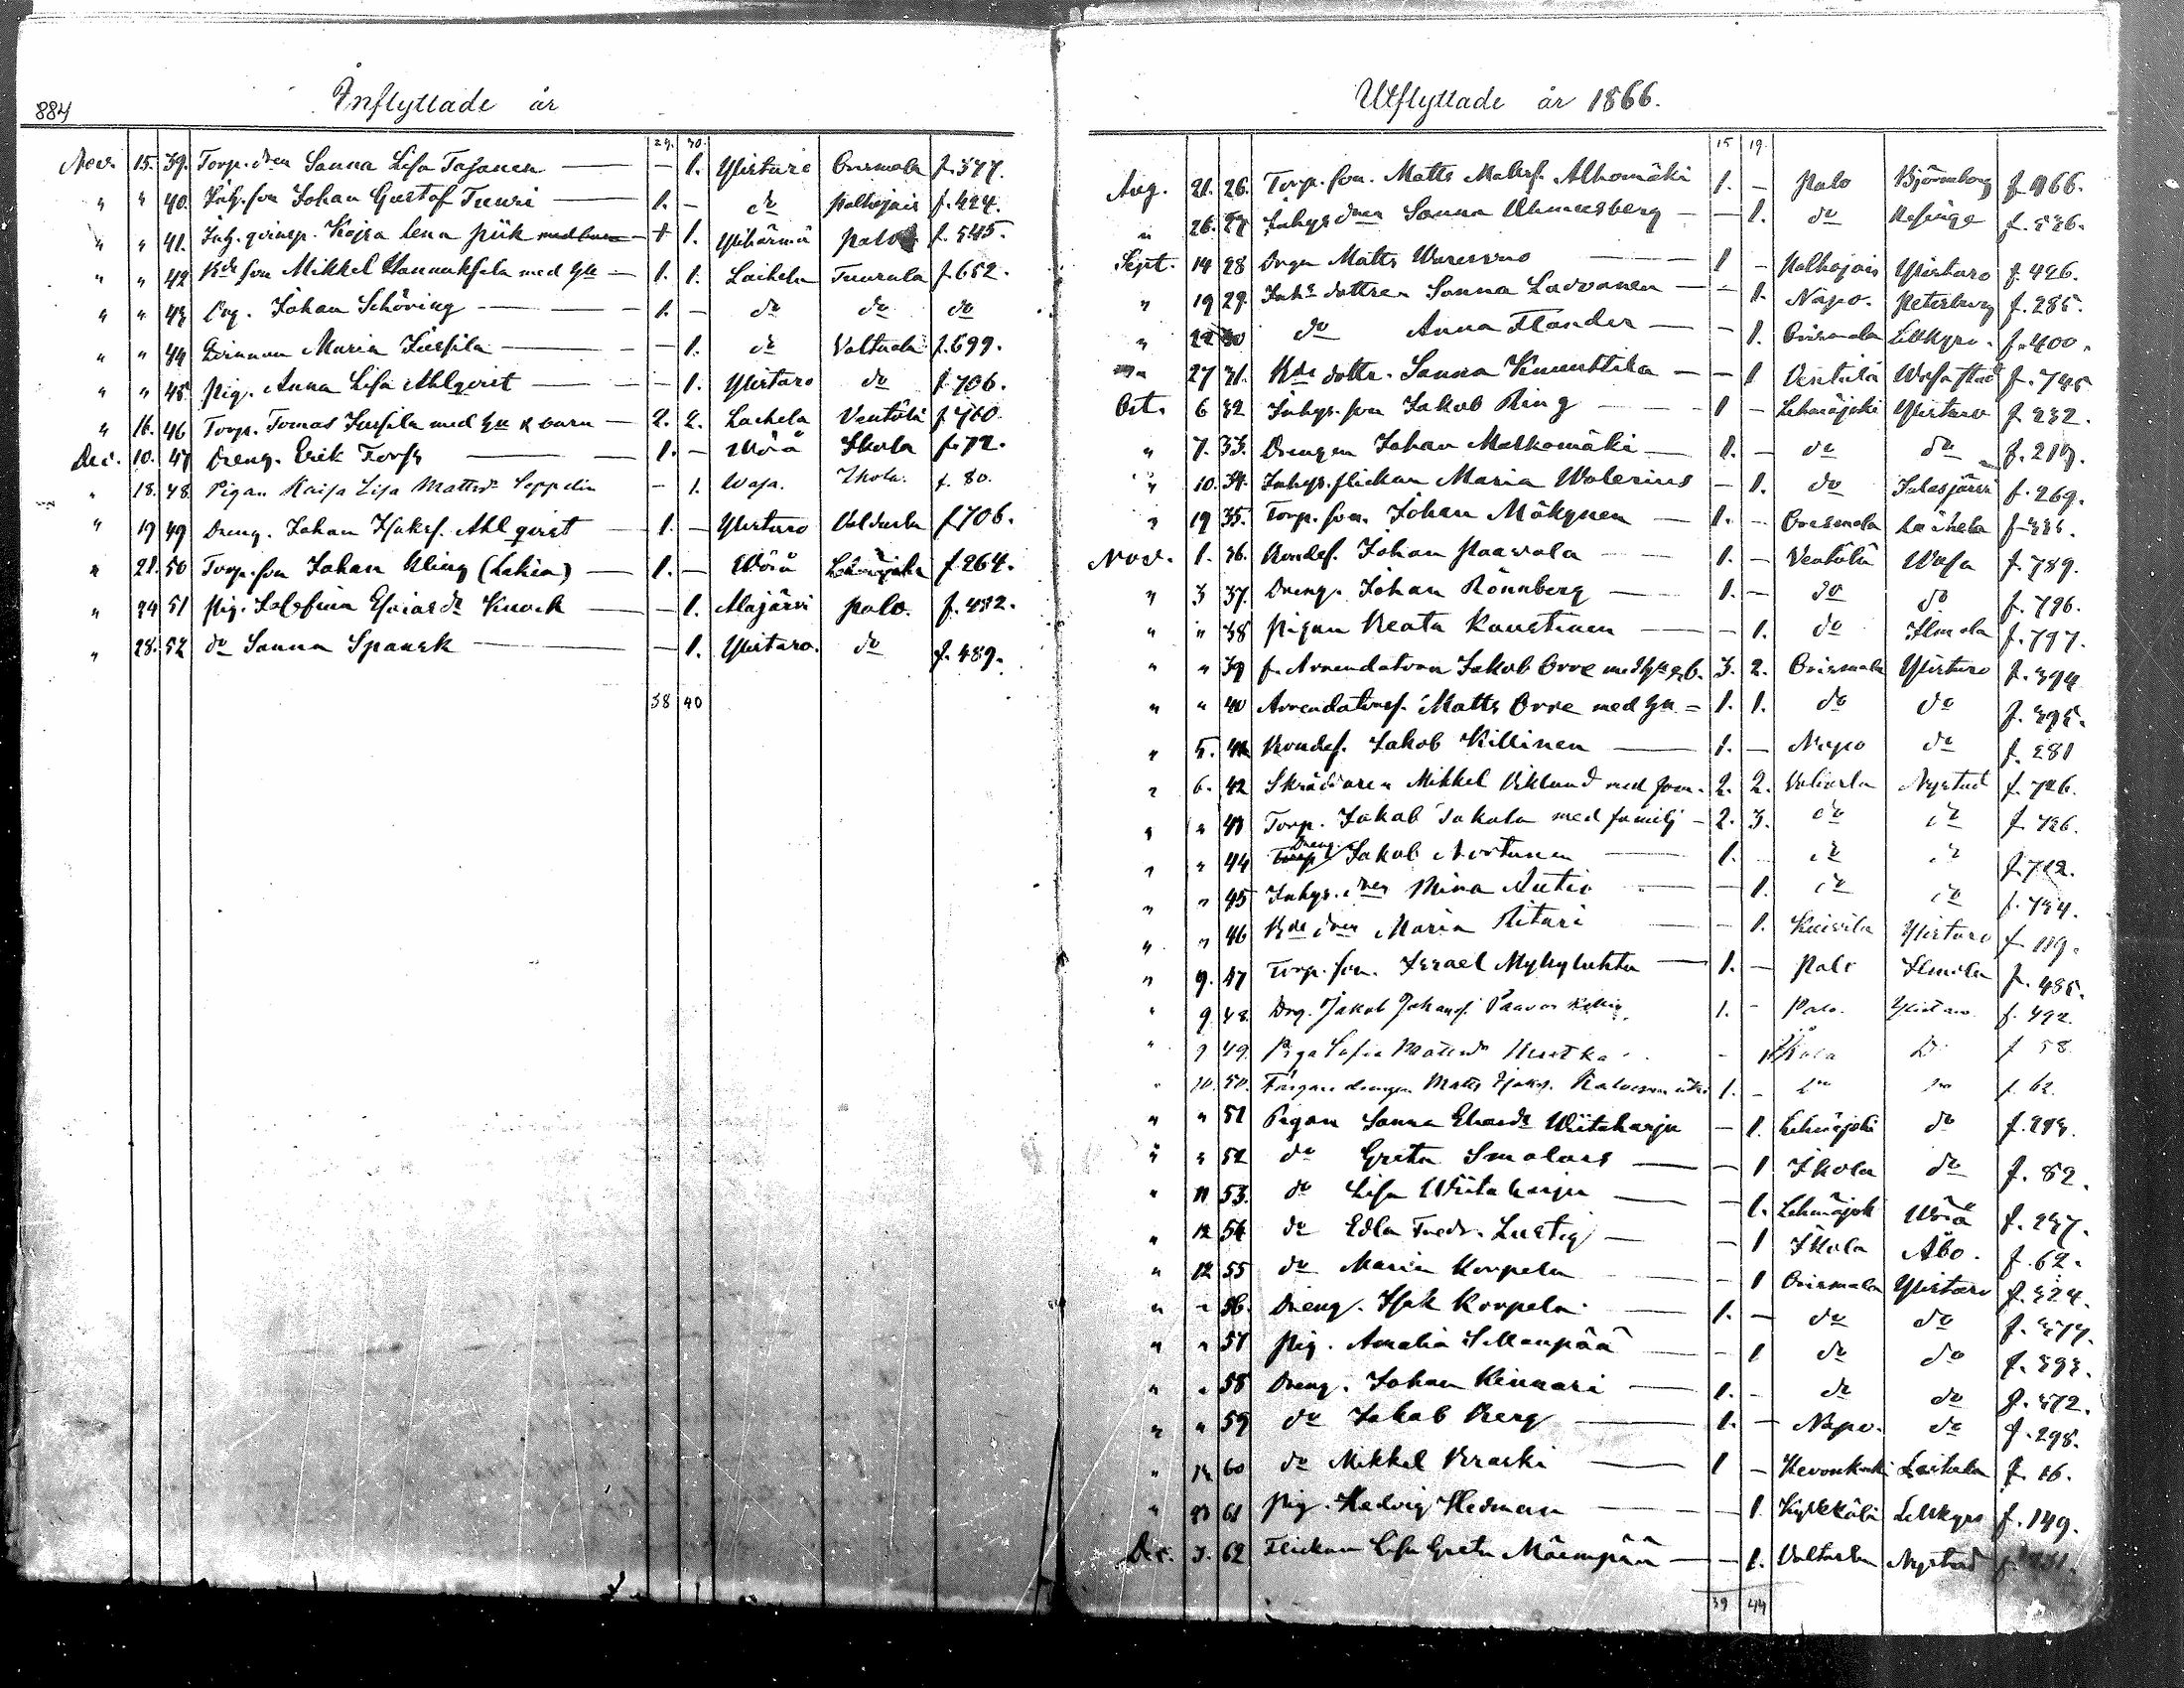 884
Inflyttade år
29. 30.
Nov. 15. 39. Torp. dren Sanna Lisa — — 1. Ylistaro Orismala f. 377.
" " 40. Inh. son Johan Gustaf Tuuri — 1. - do Palhojais f. 424.
" " 41. Inh. qvinsp. Kajsa Lena Piik 1. Ylihärmä Palo f. 545.
" " 42 Bde son Mikkel Hannuksela med hu — 1. 1. Laihela Tuurala f. 652.
" " 43 Drg. Johan Schöring — 1. - do do do
" " 44 Qvinnan Maria Jussila — — 1. do Valtaala f. 699.
" " 45 Pig. Anna Lisa Ahlqvist — — 1. Ylistaro do f. 706.
" 16. 46 Torp. Tomas Jussila med hu & barn — 2. 2. Laihela Ventälä f. 760.
Dec. 10. 47 Dreng. Erik Forss — 1. - Wörå Ikola f. 72.
" 18. 48. Pigan Kaisa Lisa Mattsdr Seppelin - 1. Wasa. Ikola. f. 80.
" 19 49 Dreng. Johan Isaksf. Ahlqvist — 1. — Ylistaro f. 706.
" 21. 50 Torp. son Johan Kling (Lakia) — 1. — Wörå f. 264.
" 24 51 Pig. Josefina Esaiasdr Knock — — 1. Alajärvi Palo. f. 482.
" 28. 52 do Sanna Spansk — — 1. Ylistaro. do f. 489.
38 40
Utflyttade år 1866.
15 19.
Aug. 21. 26. Torp. son. Matts Mattsf. Alhomäki 1. - Palo Björneborg f. 466.
" 26. 27 Inhys dren Sanna — 1. do
Sept. 14 28 Drgn Matts — 1 - Palhojais Ylistaro f. 426.
" 19 29. Inhs dottren Sanna Ladvanen — - 1. Napo. Peterburg f. 285.
" 22 30 do Anna Flander — - 1. Orismala Lillkyro. f. 400.
" 27 31. Bde dottr. Sanna Knuuttila — - 1 Ventälä Wasa stad f. 745
Oct. 6 32 Inhys. son Jakob Ring — 1 - Lehmäjoki Ylistaro f. 232.
" 7. 33. Drengen Johan Matkomäki — 1. - do do f. 217.
" 10. 34. Inhys. flickan Maria Walerius - 1. do Jalasjärvi f. 269.
" 19 35. Torp. son. Johan Mäkynen — 1. - Orismala Laihela
Nov. 1. 36. Bondes. Johan Paavola — 1. - Ventälä Wasa f. 789.
" 3 37. Dreng. Johan Rönnberg — 1. - do do f. 796.
" " 38 Pigan Beata — - 1. do Ilmola f. 797.
" " 39 f. Arrendatorn Jakob Orre med hu & b. 3. 2. Orismala Ylistaro f. 394
" " 40 Arrendatorsf. Matts Orre med hu — 1. 1. do do f. 395.
" 5. 41 Bondef. Jakob Killinen — 1. — Napo do f. 281
" 6. 42 Skräddaren Mikkel Viklund med fam. 2. 2. Nystad f. 726.
" " 43 Torp. Jakob Jakola med familj — 2. 3. do do f. 726.
" " 44 Dreng. Jakob — 1. - do do f. 712.
" " 45 Inhys. dren Mina Autio — 1. do do f. 734.
" " 46 Bde dren Maria Ritari — 1. Ylistaro f. 119.
" 9. 47 Torp. son. Israel Myllyluhta — 1. - Palo Ilmola f. 485.
" 9 48. Drg. Jakob Johansf. 1. - Palo. Ylistaro f. 492.
" 9 49. Piga Sofia Mattsdr - 1 Ikola Do f 58.
" 10. 50. Färgare drengen Matts 1. - Do Do f. 62.
" " 51 Pigan Sanna Eliasdr Wiitaharju — 1. Lehmäjoki do
" " 52 do Greta Smolars — — 1 Ikola do f. 82.
" 11 53. do Lisa Wiitaharju — - 1. Lehmäjok Wörå f. 237.
" 12 54 do Edla Fredr. Lustig — - 1 Ikola Åbo. f. 62.
" 12 55 do Maria Korpela — - 1 Orismala Ylistaro f. 324.
" " 56. Dreng. Isak Korpela — 1. - do do f. 377.
" " 57 Pig. Amalia Sillanpää — - 1 do do f. 393.
" " 58 Dreng. Johan Kinnari — 1. - do do f. 372.
" " 59 do Jakob Berg — 1. - Napo. do f. 298.
" 14 60 do Mikkel Kraski — 1 - Laihela f. 16.
" 61 Pig. Hedvig Hedman — 1. Kylkkälä Lillkyro f. 149.
Dec. 3. 62 Flickan Lisa Greta Mäenpää — - 1. Valtaala Nystad
39 44